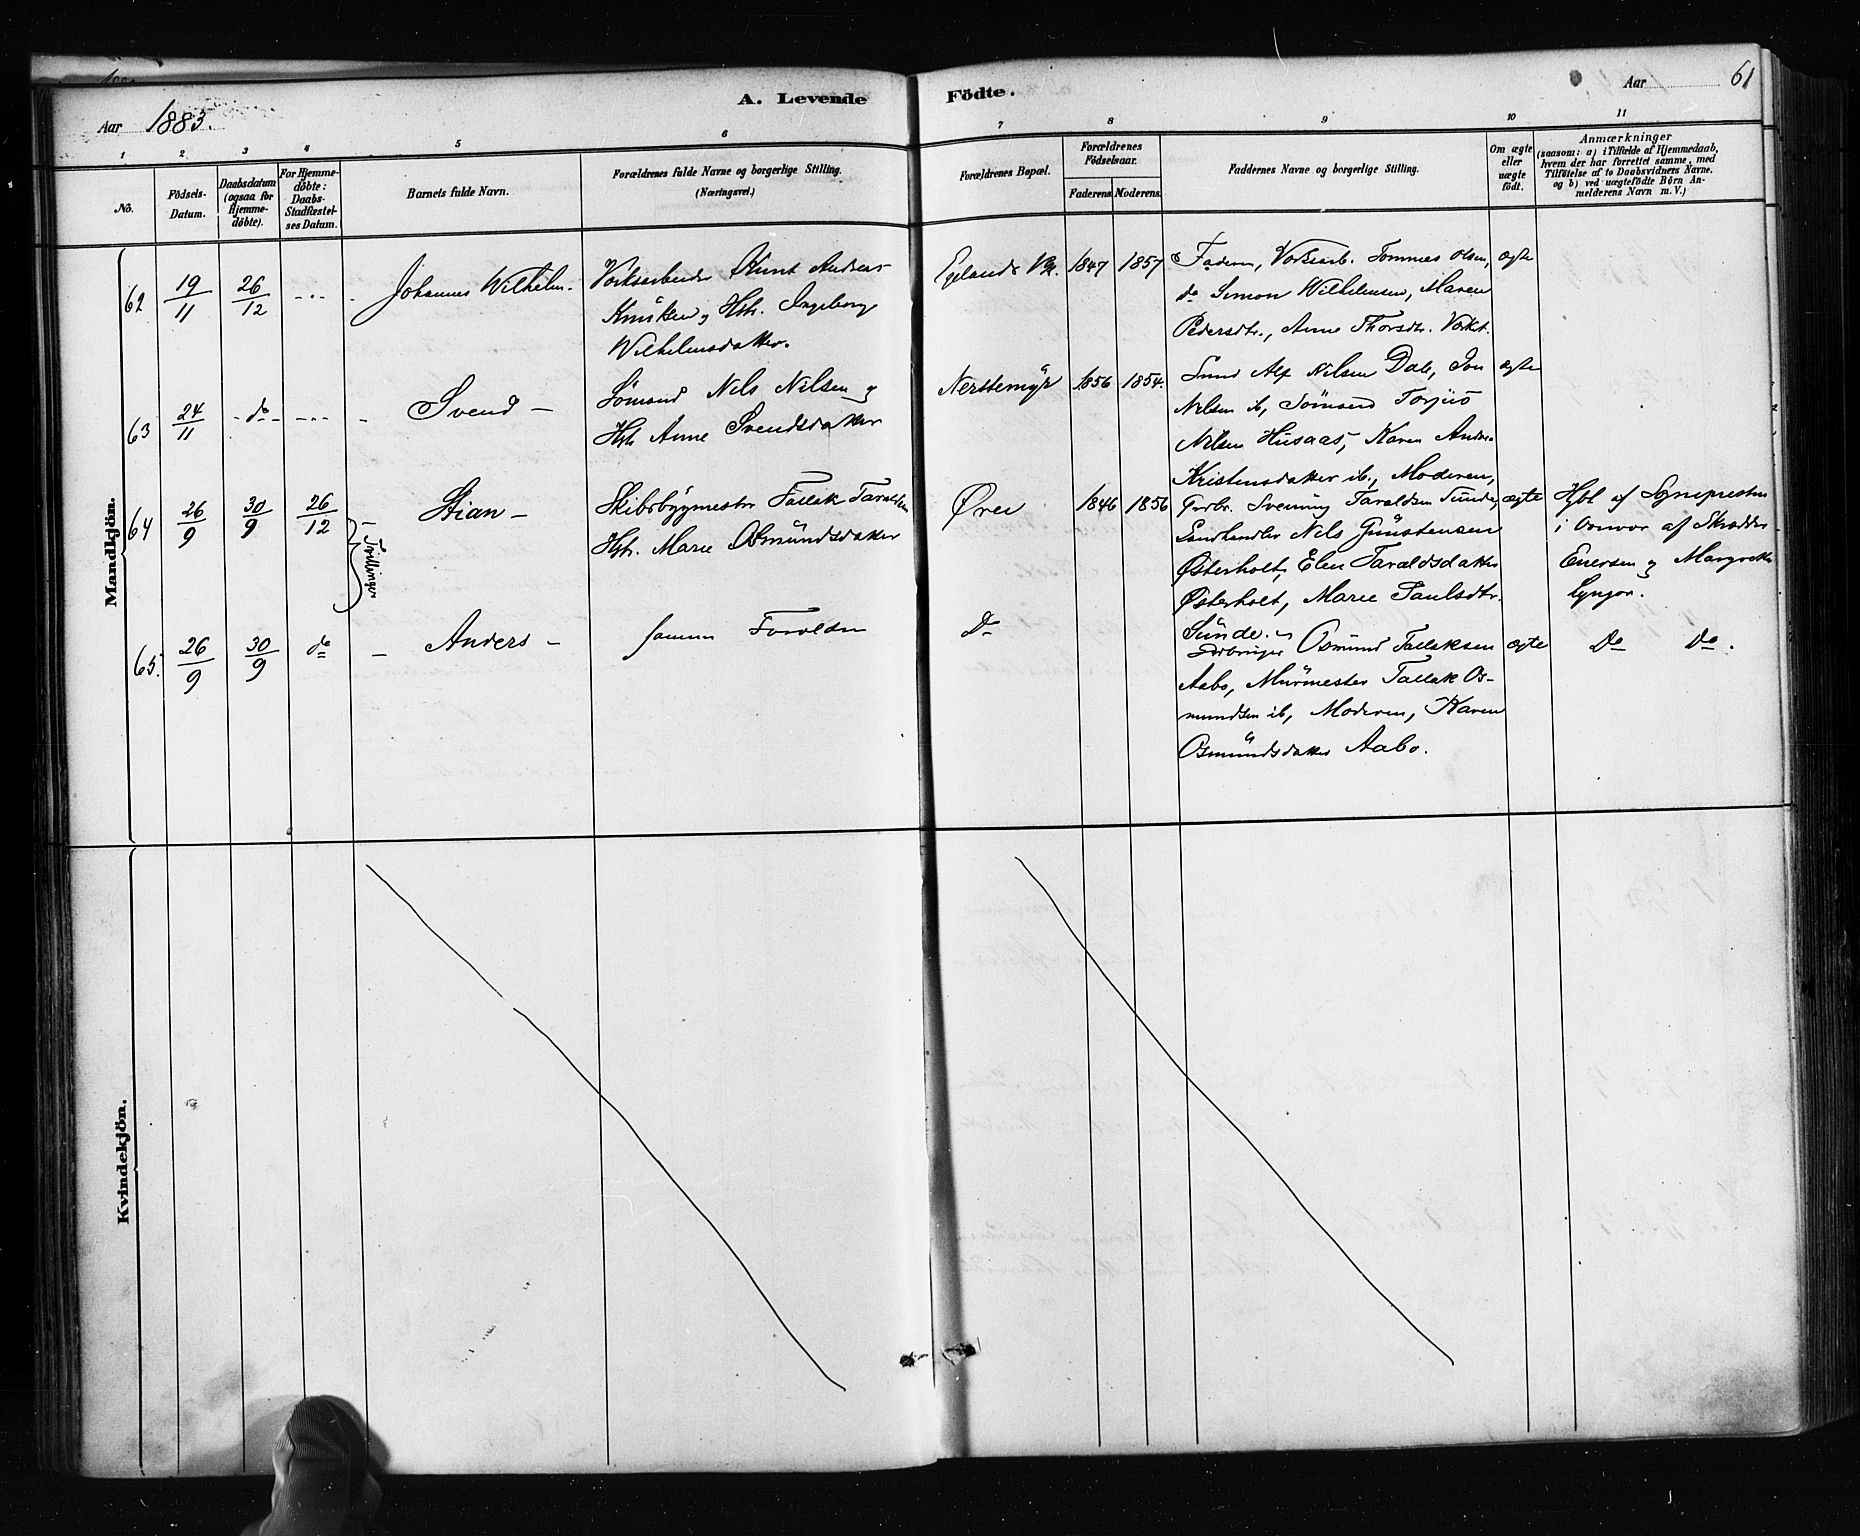 Aar 1883.
A. Levende Födte.
Aar 61
1 2 3 4 5 6 7 8 9 10 11
No.
Födsels-Datum.
Daabsdatum (ogsaa for Hjemmedöbte).
For Hjemmedöbte: Daabs-Stadfæstelses Datum.
Barnets fulde Navn.
Forældrenes fulde Navne og borgerlige Stilling.
(Næringsvei.)
Forældrenes Bopæl.
Forældrenes Födselsaar.
Faderens Moderens.
Faddernes Navne og borgerlige Stilling.
Om ægte eller uægte födt.
Anmærkninger
(saasom: a) i Tilfælde af Hjemmedaab,
hvem der har forrettet samme, med
Tilföielse af to Daabsvidners Navne,
og b) ved uægtefödte Börn An-
melderens Navn m. V.)
Mandkjön.
62 19/11 26/12 -..- Johannes Wilhelm.
Andreas
Knutsen og Hstr. Ingeborg
Wilhelmsdatter.
Eglands Vk. 1847 1857
Faderen, Tommes Olsen,
do Simon Wilhelmsen, Maren
Pedersdtr., Anne Thorsdtr.
ægte
63 24/11 - do - -..- Svend -
Sömand Nels Nilsen og
Hstr. Anne Svendsdatter
Nerstemyr 1856 1854.
Alf Nilsen Dale, Jon
Nilsen ib, Sömand Torjus
Nilsen Husaas, Karen
Kristensdatter ib., Moderen,
ægte
64 26/9 30/9 26/12 Tvillinger
Stian -
Skibsbygmester Tallak Taraldsen
Hstr. Marie Osmundsdatter
Øren 1846 1856
Svenning Taraldsen Sunde,
Nels Gunstensen
Østerholt, Elen Taraldsdatter
Østerholt, Marie Paulsdtr.
Sunde.
ægte
af Sognepresten
i af
Enersen og Margrethe
Lyngör.
65. 26/9 30/9 do - Anders -
samme Forældre
Do
Osmund Tallaksen
Aabo, Murmester Tallak Os-
mundsen ib, Moderen, Karen
Osmundsdatter Aabo.
ægte
Do Do.
Kvindekjön.